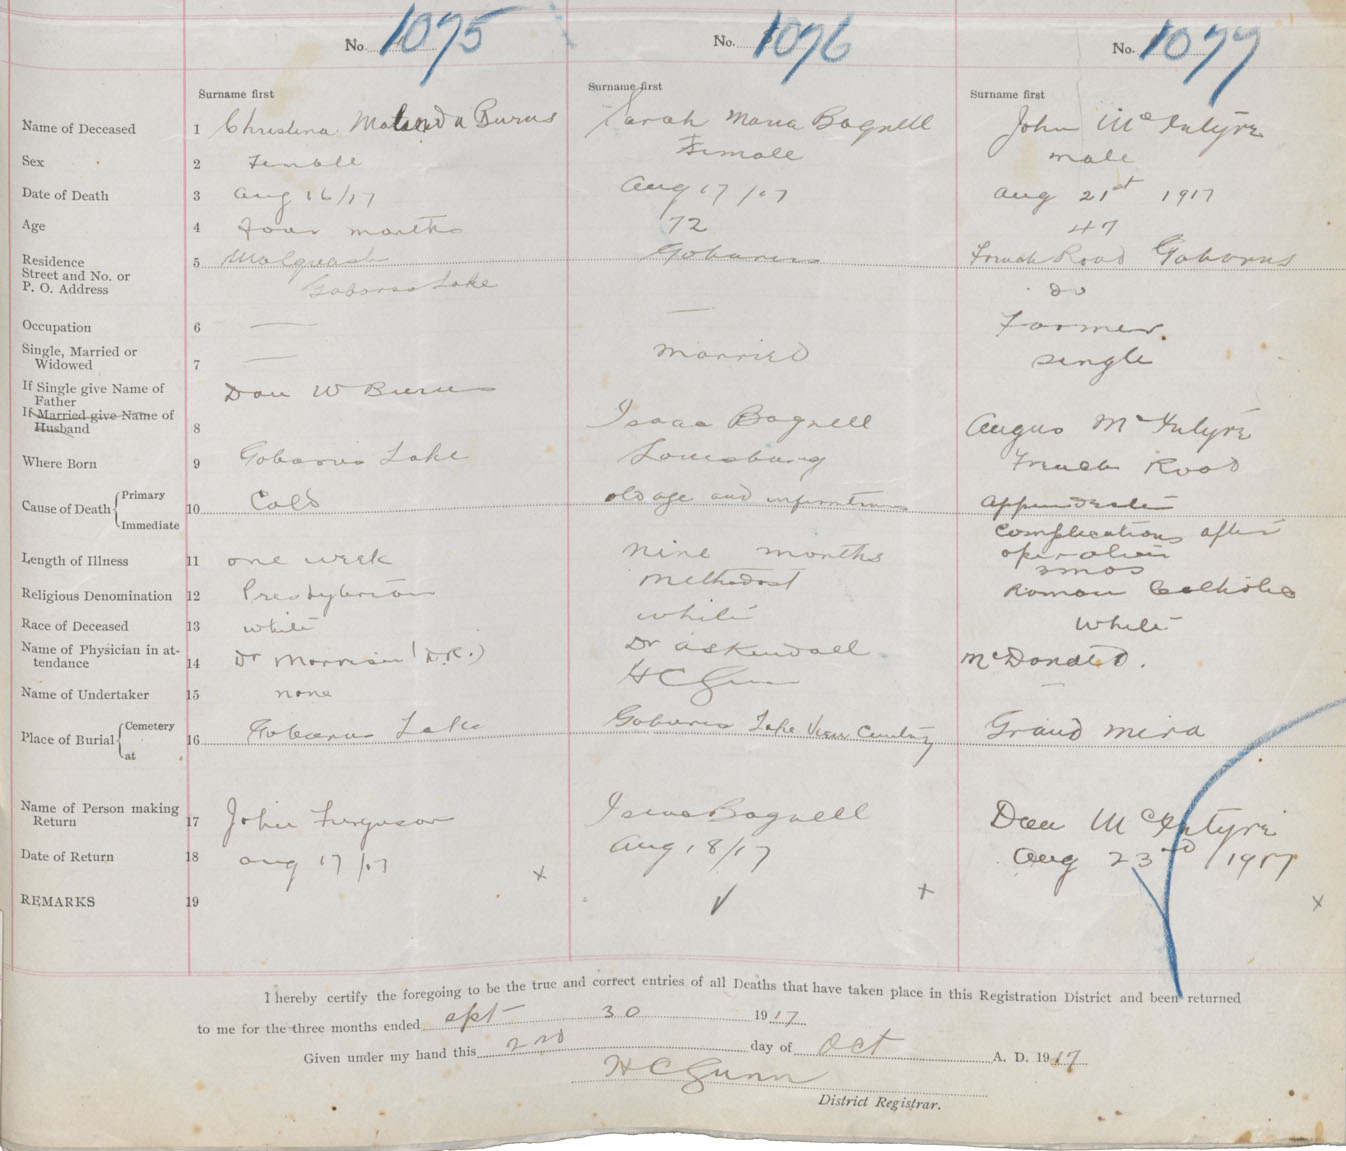 No. 1075
No. 1076
No. 1077
Surname first
Surname first
Surname first
Name of Deceased 1 Christena Malinda Burns Sarah Maria Bagnell John McIntyre
Sex 2 Female Female male
Date of Death 3 Aug 16/17 Aug 17/17 Aug 21st 1917
Age 4 four months 72 47
Residence 5 Gabarus French Road Gabarus
Street and No. or
P. O. Address Gabarus Lake do
Occupation 6 — — Farmer.
Single, Married or
Widowed 7 — married single
If Single give Name of
Father Dan W Burns
If Married give Name of
Husband 8 Isaac Bagnell Angus McIntyre
Where Born 9 Gabarus Lake Louisburg French Road
Cause of Death { Primary
Immediate 10 Cold old age and infirmities
complications after
operation
Length of Illness 11 one week nine months 3mos
Religious Denomination 12 Presbyterian Methodist Roman Catholic
Race of Deceased 13 white white white
Name of Physician in at-
tendance 14 Dr Morrison (D.K.) Dr A S Kendall McDonald.
Name of Undertaker 15 none H C Gunn —
Place of Burial { Cemetery
at 16 Gabarus Lake Gabarus Lake View Cemetery Grand Mira
Name of Person making
Return 17 John Ferguson Isaac Bagnell Dan McIntyre
Date of Return 18 Aug 17/17 Aug 18/17 Aug 23rd/1917
REMARKS 19
I hereby certify the foregoing to be the true and correct entries of all Deaths that have taken place in this Registration District and been returned
to me for the three months ended Sept 30 1917
Given under my hand this 2nd day of Oct A. D. 1917
H C Gunn
District Registrar.